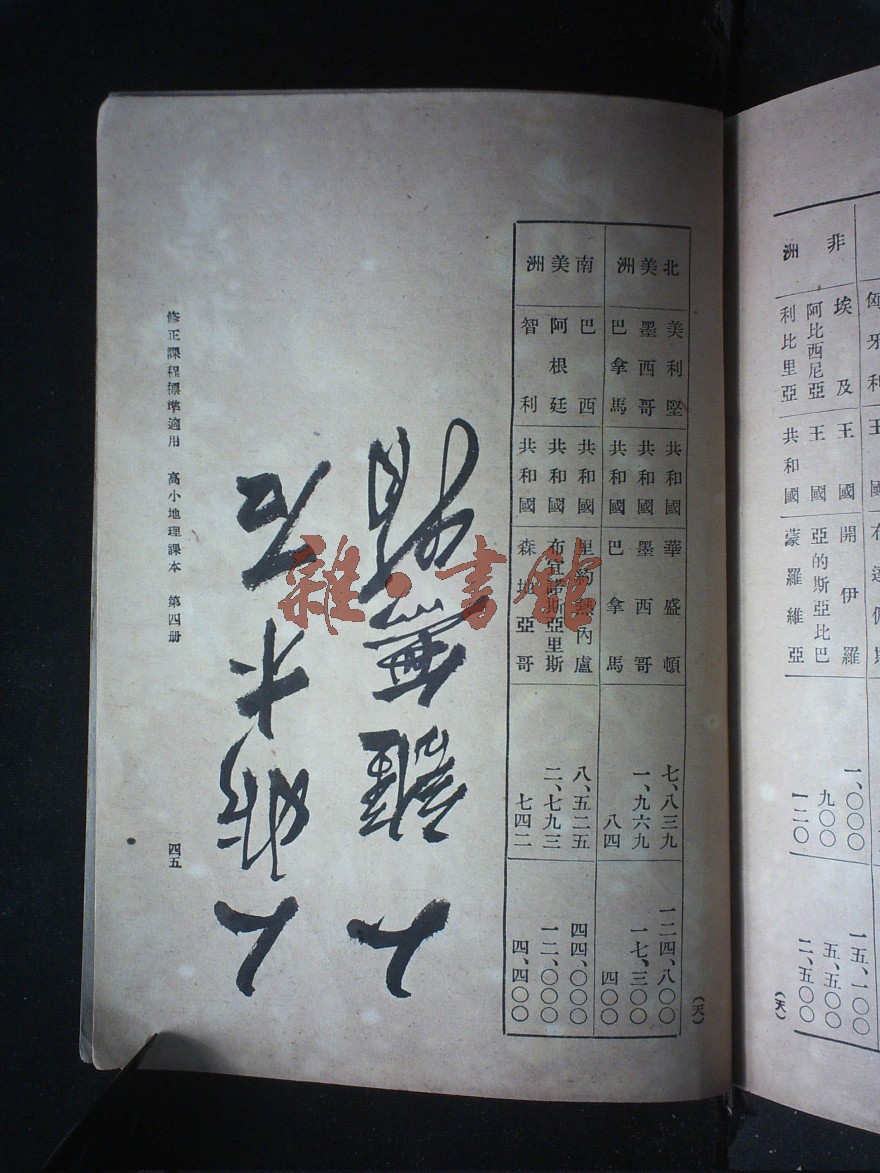 匈牙利 王國
非洲 埃及 王國 開伊羅 一、〇〇〇 一五、一〇〇
阿比西尼亞 王國 亞的斯亞比巴 九〇〇 五、五〇〇
利比里亞 共和國 蒙羅維亞 一二〇 二、五〇〇
(天)
(天)
北美洲 美利堅 共和國 華盛頓 七、八三九 一二四、八〇〇
墨西哥 共和國 墨西哥 一、九六九 一七、三〇〇
巴拿馬 共和國 巴拿馬 八四 四〇〇
南美洲 巴西 共和國 里約熱內盧 八、五二五 四四、〇〇〇
阿根廷 共和國 布宜諾斯亞里斯 二、七九三 一二、〇〇〇
智利 共和國 森地亞哥 七四二 四、四〇〇
人非木石
人雖無
修正課程標準適用 高小地理課本 第四册 四五
雜·書館